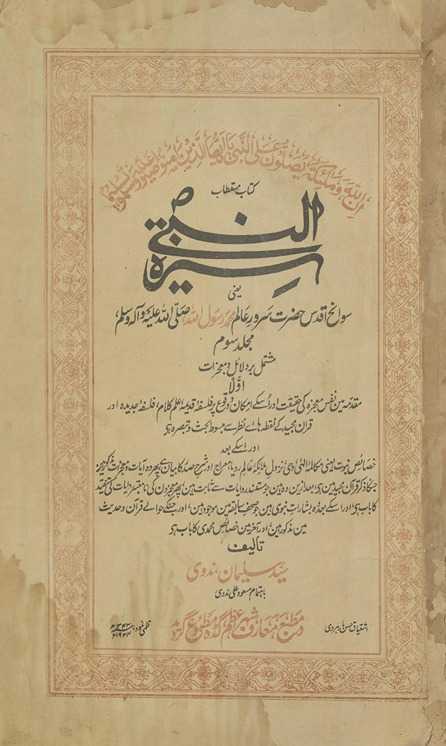 ان اللہ وملٰئکتہ یصلون علی النبی یایھا الذین امنوا صلوا علیہ وسلموا تسلیما
کتاب مستطاب
سیرۃ النبی
یعنی
سوانح اقدس حضرت سرور عالم محمد رسول اللہ صلی اللہ علیہ وآلہ وسلم،
مجلد سوم
مشتمل بر دلائل و معجزات
اولاً
مقدمہ مین نفس معجزہ کی حقیقت اور اُسکے امکان و وقوع پر فلسفۂ قدیمہ، علم کلام، فلسفۂ جدیدہ اور
قرآن مجید کے نقطہ ہائے نظر سے مبسوط بحث و تبصرہ ہی
اور اُسکے بعد
خصائص نبوت یعنی مکالمۂ الٰہی، وحی، نزول ملائکہ، عالم رویا، معراج اور شرح صدر کا بیان ہی، پھر وہ آیات و معجزات
جنکا ذکر قرآن مجید مین ہی، بعد ازین وہ ہین جو مستند روایات سے ثابت ہین، پھر معجزون کی نامعتبر روایات کی تنقید
کا باب ہی، اور اسکے بعد وہ بشارات نبوی ہین جو صحف سابقہ مین موجود ہین، اور جنکے حوالے قرآن و حدیث
مین مذکور ہین، اور آخر مین خصائص محمدی کا باب ہی
تالیف
سید سلیمان ندوی
باہتمام مسعود علی ندوی
در مطبع معارف شہر اعظم گڈہ مطبوع گردید